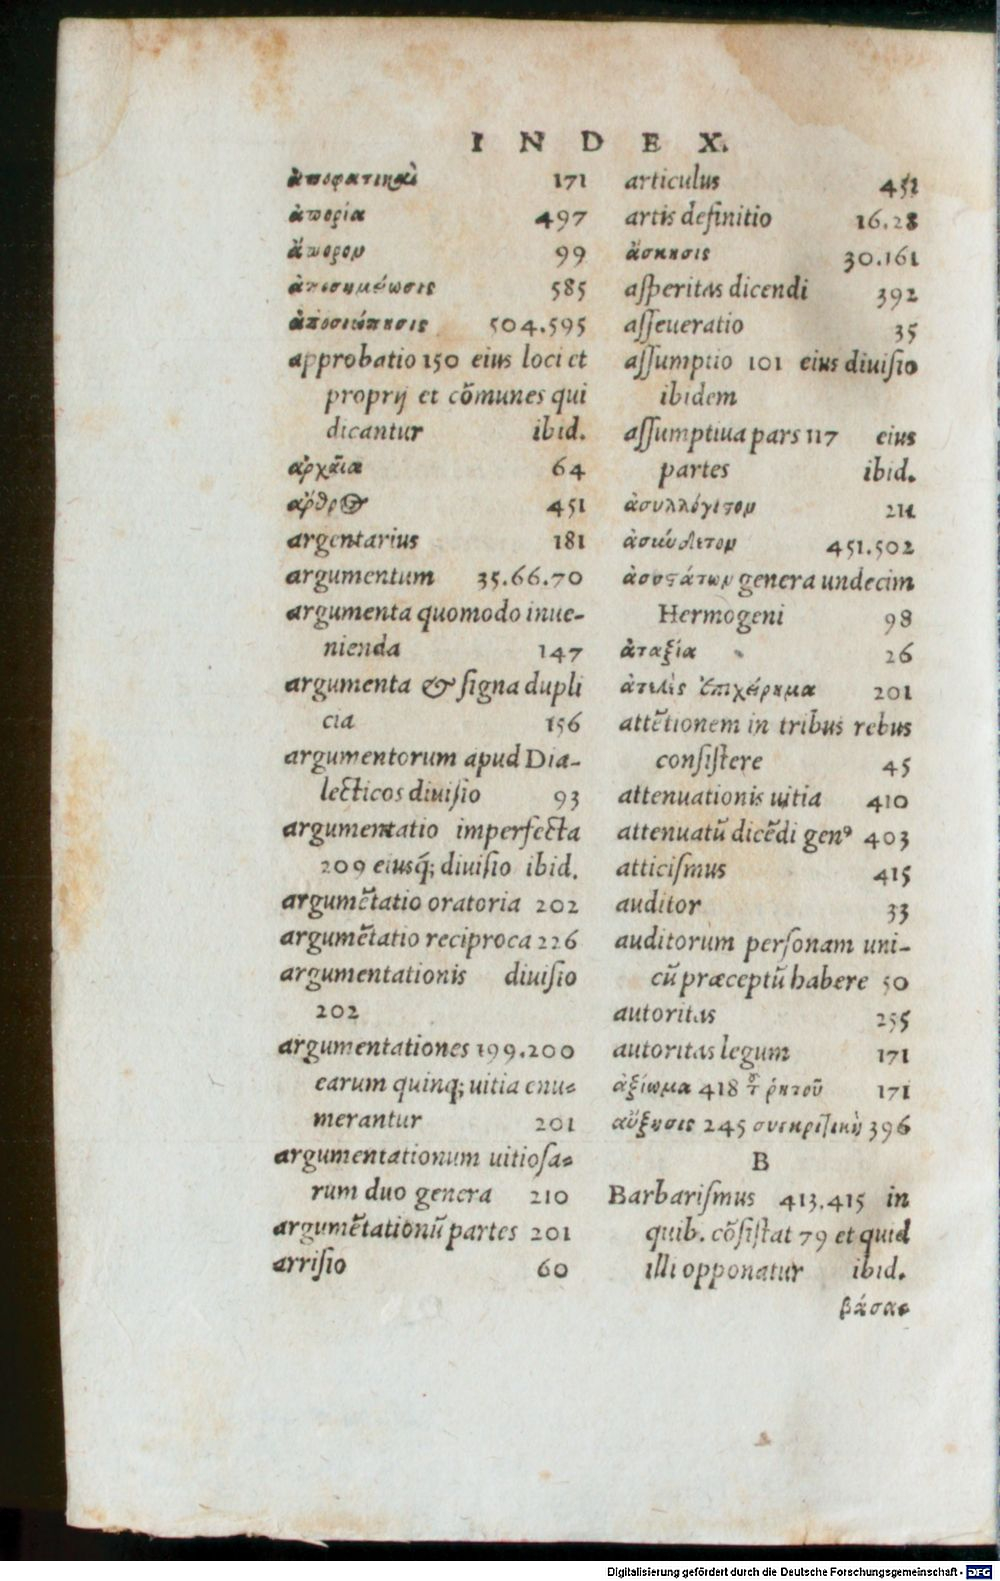 INDEX.
ἀποφατικαὶ 171
ἀπορία 497
ἄπορον 99
ἀποσημείωσις 585
ἀποσιώπησις 504.595
approbatio 150 eius loci et
proprij et cōmunes qui
dicantur ibid.
ἀρχαῖα 64
ἄρθρον 451
argentarius 181
argumentum 35.66.70
argumenta quomodo inue-
nienda 147
argumenta & ſigna dupli
cia 156
argumentorum apud Dia-
lecticos diuiſio 93
argumentatio imperfecta
209 eiusq́; diuiſio ibid.
argumētatio oratoria 202
argumētatio reciproca 226
argumentationis diuiſio
202
argumentationes 199.200
earum quinq; uitia enu-
merantur 201
argumentationum uitioſa-
rum duo genera 210
argumētationū partes 201
arriſio 60
articulus 451
artis definitio 16.28
ἄσκησις 30.161
aſperitas dicendi 392
aſſeueratio 35
aſſumptio 101 eius diuiſio
ibidem
aſſumptiua pars 117 eius
partes ibid.
ἀσυλλόγιστον 211
ἀσύνδετον 451.502
ἀσυστάτων genera undecim
Hermogeni 98
ἀταξία 26
ἀτελὲς ἐπιχείρημα 201
attētionem in tribus rebus
conſiſtere 45
attenuationis uitia 410
attenuatū dicēdi genꝰ 403
atticiſmus 415
auditor 33
auditorum perſonam uni-
cū præceptū habere 50
autoritas 255
autoritas legum 171
ἀξίωμα 418 τοῦ ῥητοῦ 171
αὔξησις 245 συγκριτικὴ 396
B
Barbariſmus 413.415 in
quib. cōſiſtat 79 et quid
illi opponatur ibid.
βάσα-
Digitalisierung gefördert durch die Deutsche Forschungsgemeinschaft - DFG